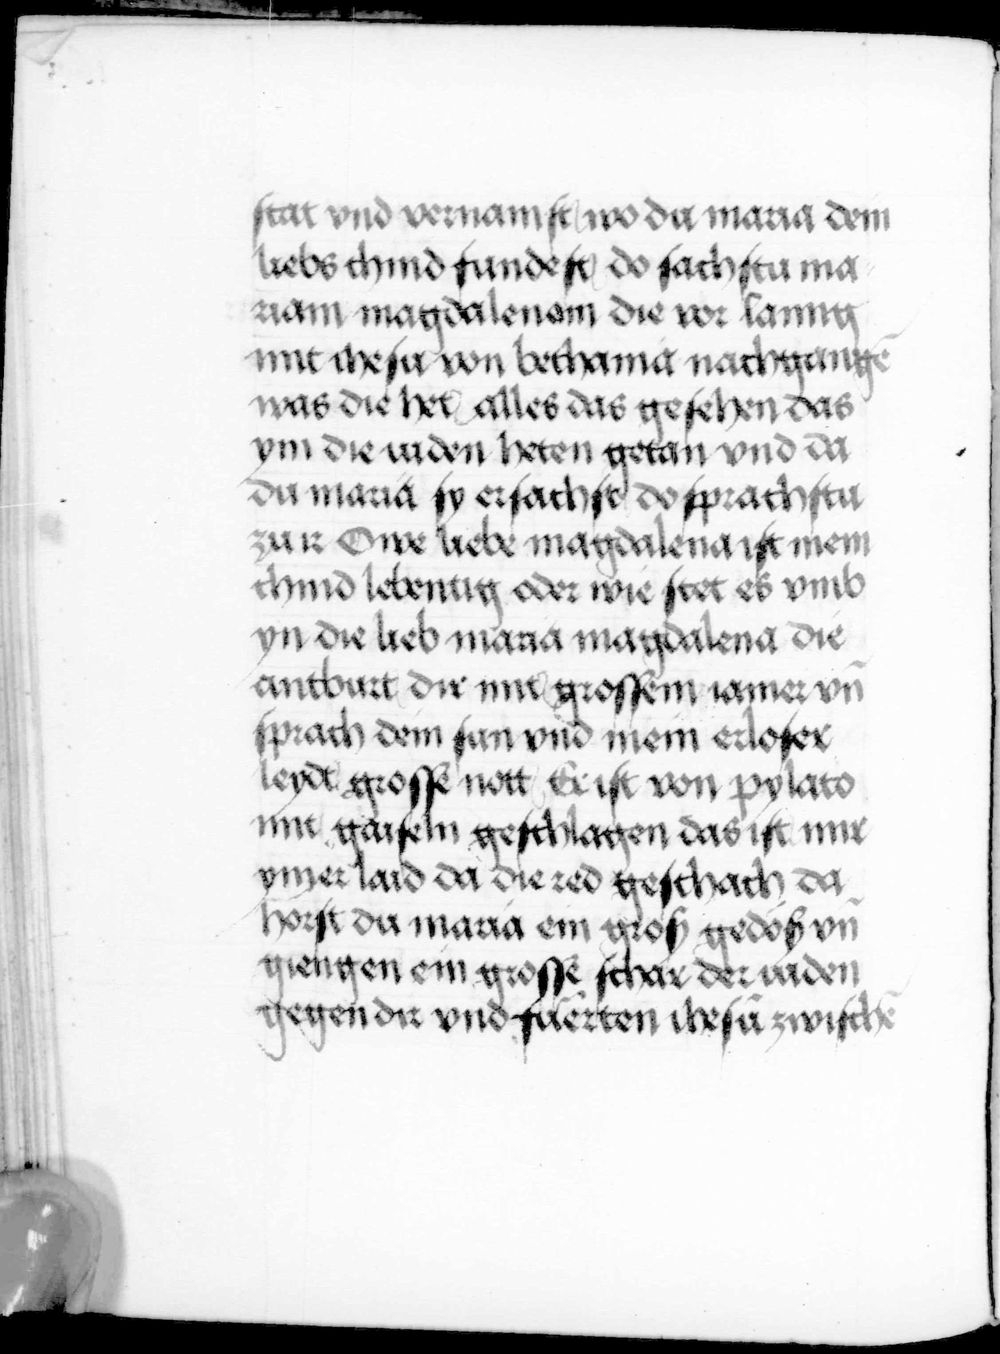 stat vnd vernamst wo du maria dein
liebs chind fundest do sachstu ma-
riam magdalenam die vor lanng
mit ihesu von bethania nachgangē
was die het alles das gesehen das
ym die iuden heten getan vnd da
du maria sy ersachst do sprachstu
zu ir Owe liebe magdalena ist mein
chind lebentig oder wie stet es vmb
yn die lieb maria magdalena die
antburt dir mit grossem iamer vn̄
sprach dein sun vnd mein erloser
leydt grosse nott Er ist von pylato
mit gaiseln geschlagen das ist mir
ymer laid da die red geschach da
hörst du maria ein groß gedöß vn̄
giengen ein grosse schar der iuden
gegen dir vnd fuerten ihesū zwischē